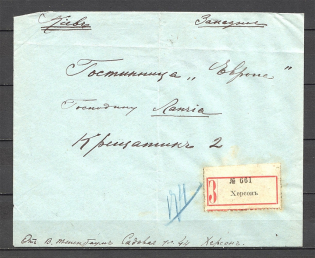 Кіевъ Заказное
Гостинница „Европа"
Господину
Крещатикъ 2
№ 661
З
Херсонъ.
Отъ В. Садовая 44 Херсонъ.